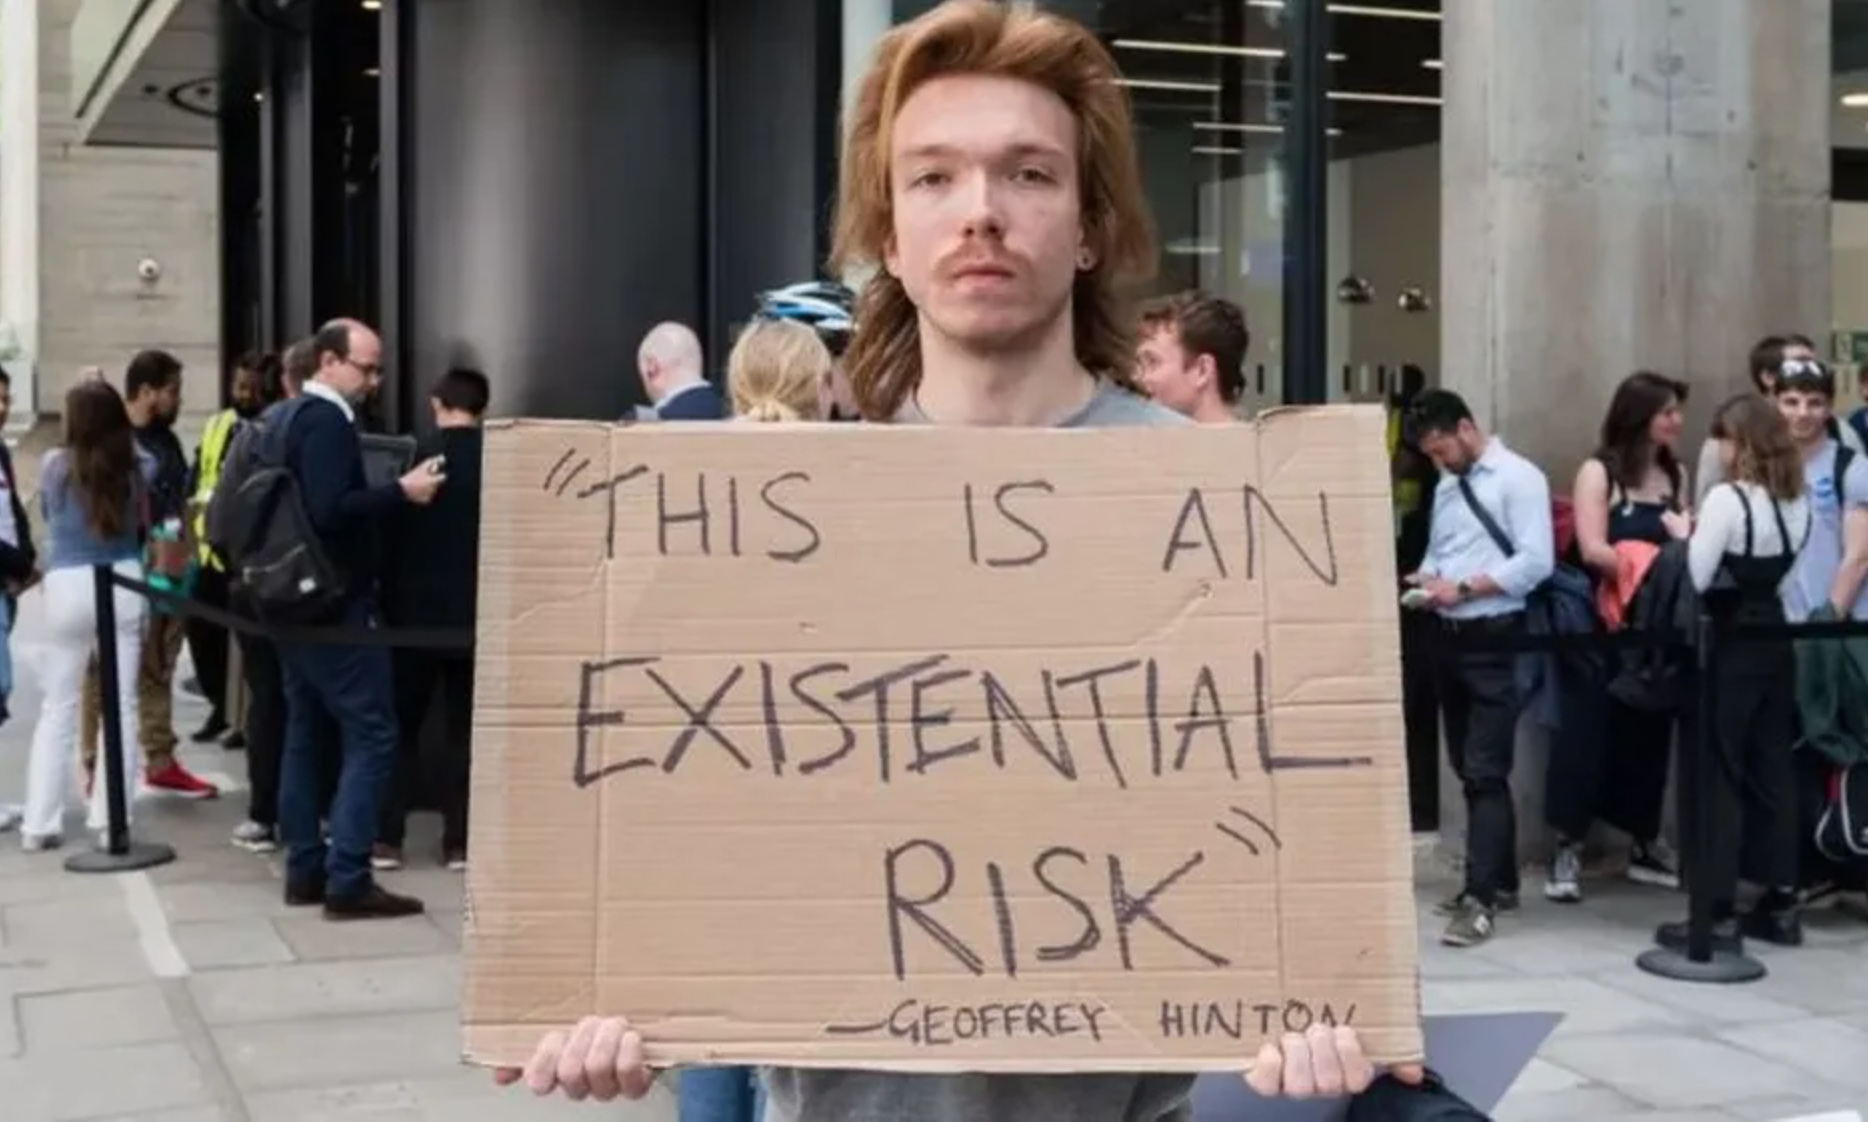 "THIS IS AN
EXISTENTIAL
RISK"
—GEOFFREY HINTON